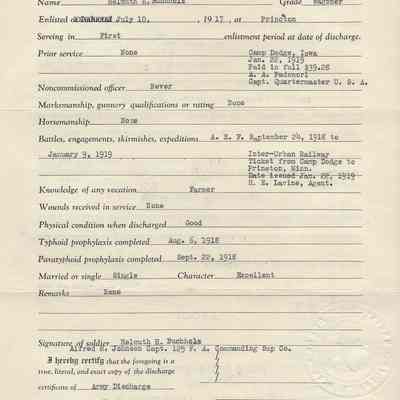 Name Helmuth H. Buchholz Grade Wagoner
Enlisted or July 10, 1917 at Princton
Serving in First enlistment period at date of discharge.
Prior service None
Camp Dodge, Iowa
Jan. 22, 1919
Paid in full $39.28
A. A. Padmore
Capt. Quartermaster U. S. A.
Noncommissioned officer Never
Marksmanship, gunnery qualifications or rating None
Horsemanship None
Battles, engagements, skirmishes, expeditions A. E. F. September 24, 1918 to
January 9, 1919
Inter-Urban Railway
Ticket from Camp Dodge to
Princton, Minn.
Date issued Jan. 22, 1919
H. E. Lavine, Agent.
Knowledge of any vocation Farmer
Wounds received in service None
Physical condition when discharged Good
Typhoid prophylaxis completed Aug. 6, 1918
Paratyphoid prophylaxis completed Sept. 22, 1918
Married or single Single Character Excellent
Remarks None
Signature of soldier Helmuth H. Buchholz
Alfred E. Johnson Capt. 125 F. A. Commanding Sup Co.
I hereby certify that the foregoing is a
true, literal, and exact copy of the discharge
certificate of Army Discharge